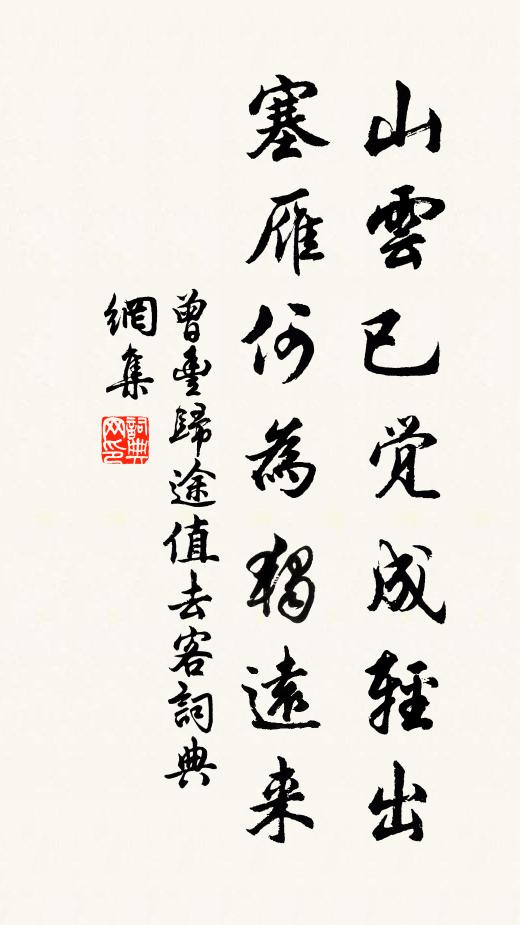 山雲已觉成輕出
塞雁何為獨遠来
曾豐歸途值去客詞典
網集
詞典
网印